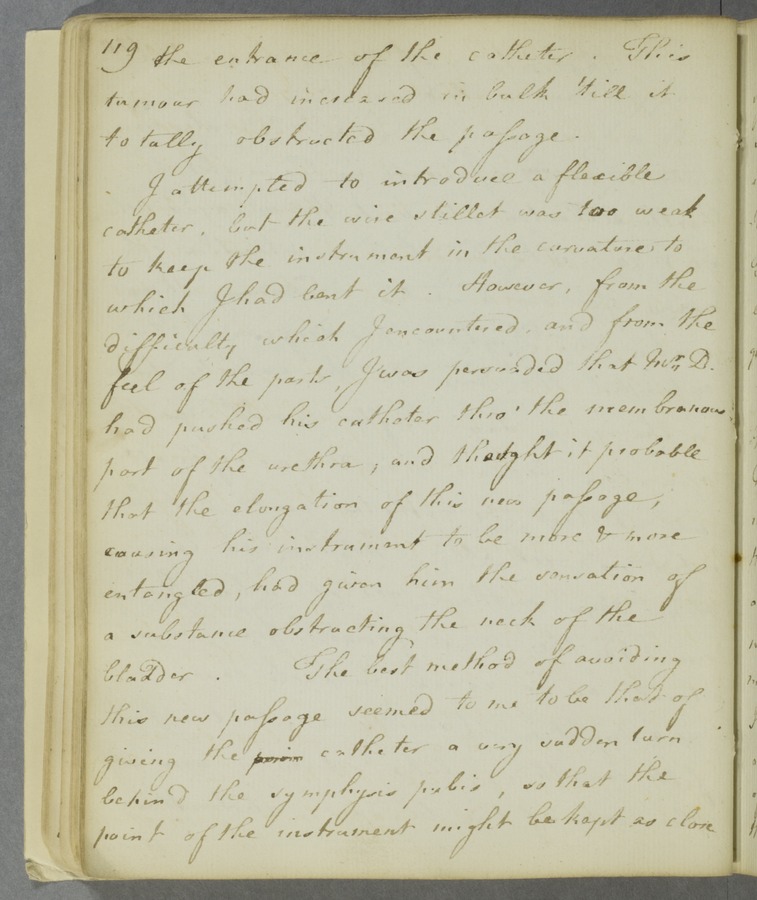 119 the entrance of the catheter. This
tumour had increased in bulk 'till it
totally obstructed the passage.
I attempted to introduce a flexible
catheter, but the wire stillet was too weak
to keep the instrument in the curvature to
which I had bent it. However, from the
difficulty which I encountered, and from the
feel of the parts, I was persuaded that D.
had pushed his catheter thro' the membranous
part of the urethra; and thought it probable
that the elongation of this new passage,
causing his instrument to be more & more
entangled, had given him the sensation of
a substance obstructing the neck of the
bladder. The best method of avoiding
this new passage seemed to me to be that of
giving the catheter a very sudden turn
behind the symphysis pubis, so that the
point of the instrument might be kept as close